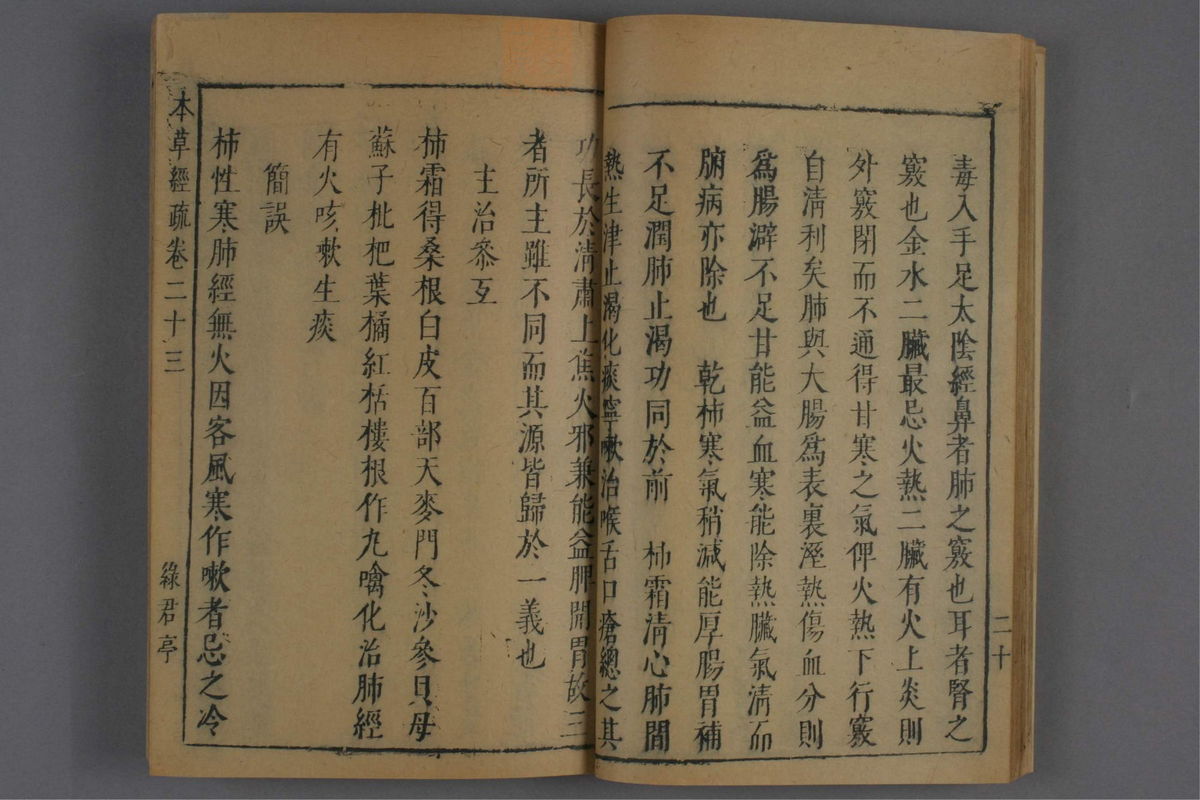 毒入手足太陰經鼻者肺之竅也耳者腎之
竅也金水二臟最忌火熱二臟有火上炎則
外竅閉而不通得甘寒之氣俾火熱下行竅
自清利矣肺與大腸爲表裏溼熱傷血分則
爲腸澼不足甘能益血寒能除熱臟氣清而
腑病亦除也　乾柿寒氣稍減能厚腸胃補
不足潤肺止渴功同於前　柿霜清心肺間
熱生津止渴化痰寧嗽治喉舌口瘡總之其
二十
功長於清肅上焦火邪兼能益脾開胃故三
者所主雖不同而其源皆歸於一義也
主治參互
柿霜得桑根白皮百部天麥門冬沙參貝母
蘇子枇杷葉橘紅栝樓根作丸噙化治肺經
有火咳嗽生痰
簡誤
柿性寒肺經無火因客風寒作嗽者忌之冷
本草經疏卷二十三
綠君亭